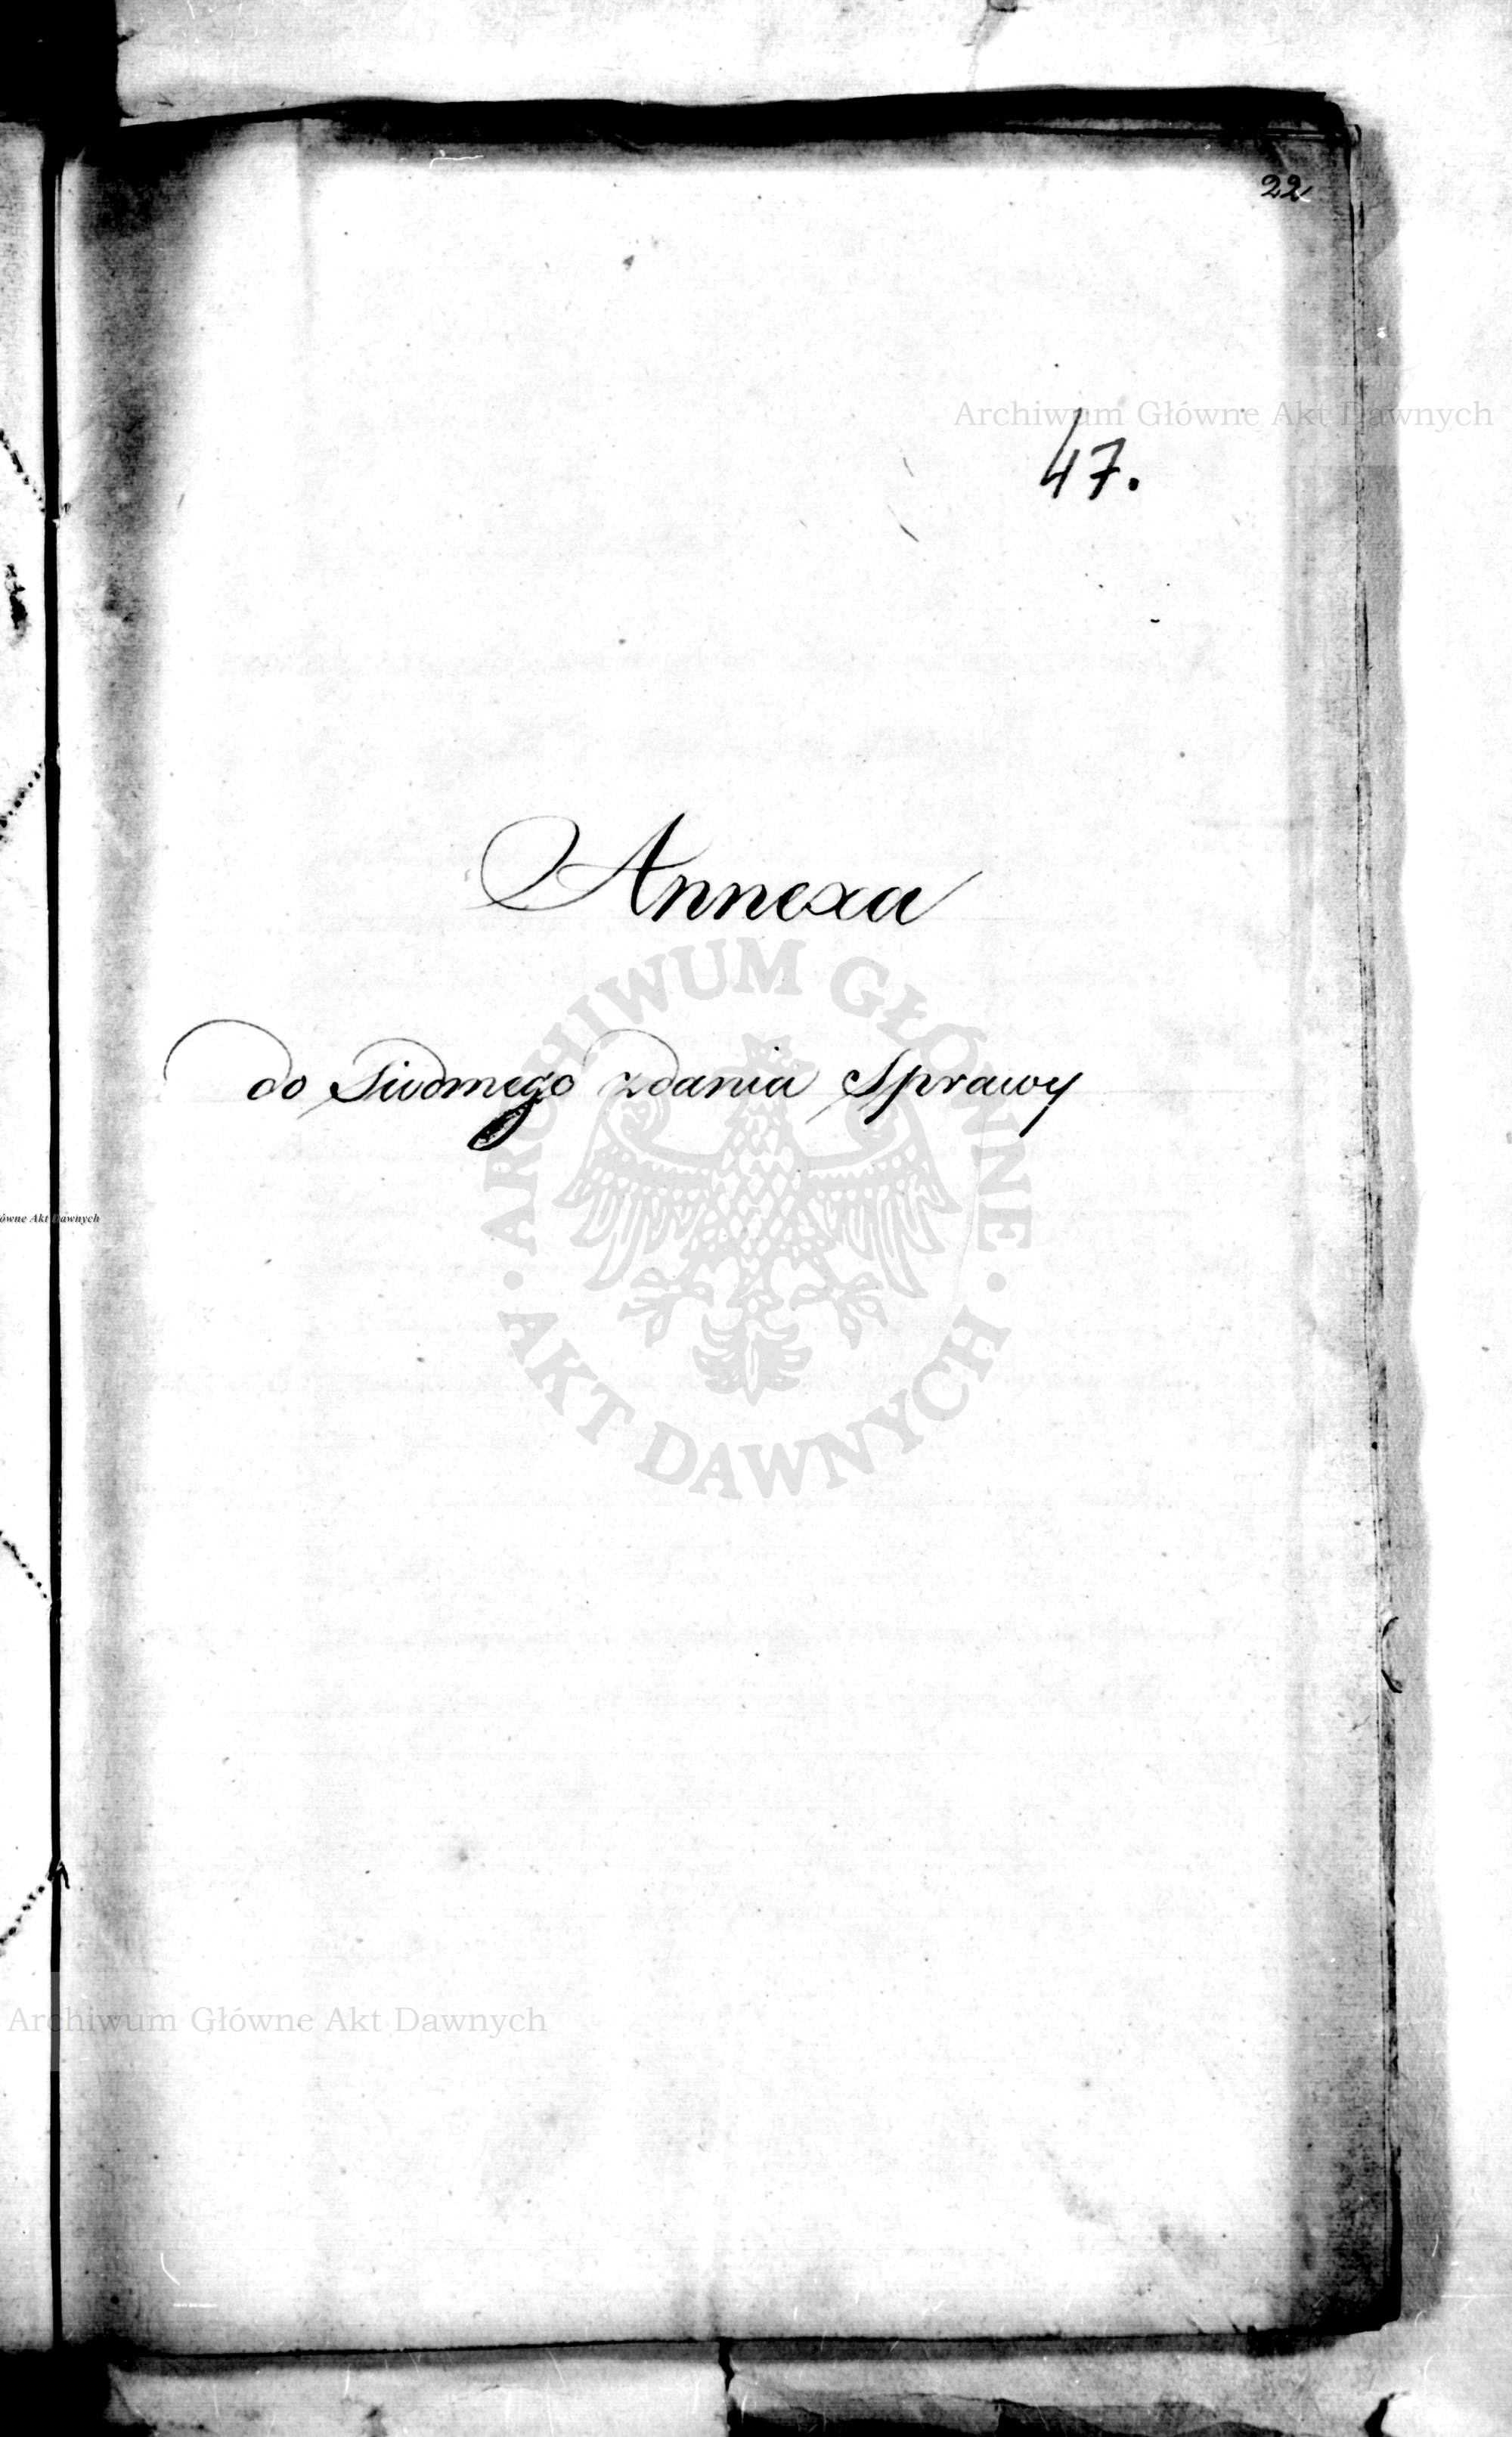 22
Archiwum Główne Akt Dawnych
47.
Annexa
do Siudmego zdania Sprawy
ARCHIWUM GŁÓWNE
AKT DAWNYCH
ówne Akt Dawnych
Archiwum Główne Akt Dawnych